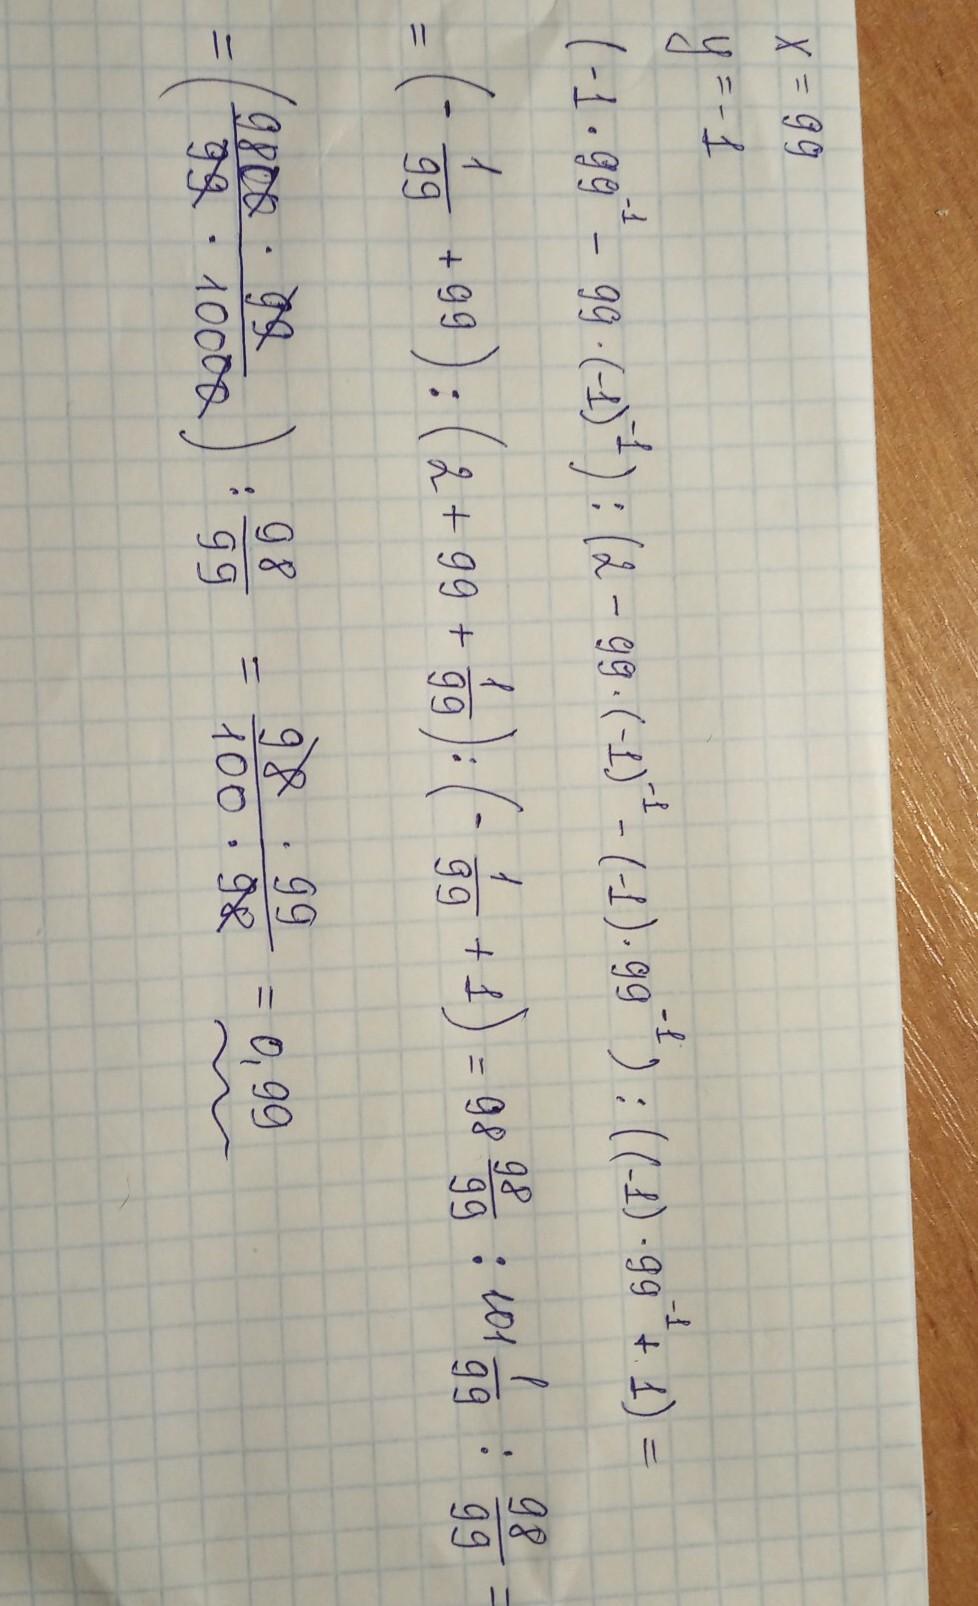 x = 99
y = -1
(-1 · 99⁻¹ - 99 · (-1)⁻¹) : (2 - 99 · (-1)⁻¹ - (-1) · 99⁻¹) : ((-1) · 99⁻¹ + 1) =
= (- 1/99 + 99) : (2 + 99 + 1/99) : (- 1/99 + 1) = 98 98/99 : 101 1/99 : 98/99 =
= (9800 · 99 / 99 · 10000) : 98/99 = 98 · 99 / 100 · 98 = 0,99